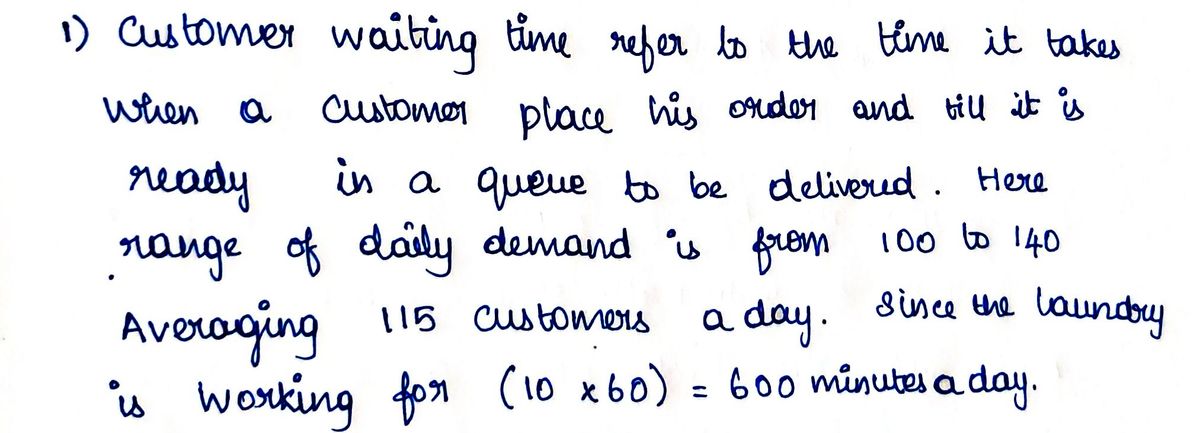 1) Customer waiting time refer to the time it takes
when a customer place his order and till it is
ready in a queue to be delivered. Here
range of daily demand is from 100 to 140
Averaging 115 customers a day. Since the laundry
is working for (10 x 60) = 600 minutes a day.